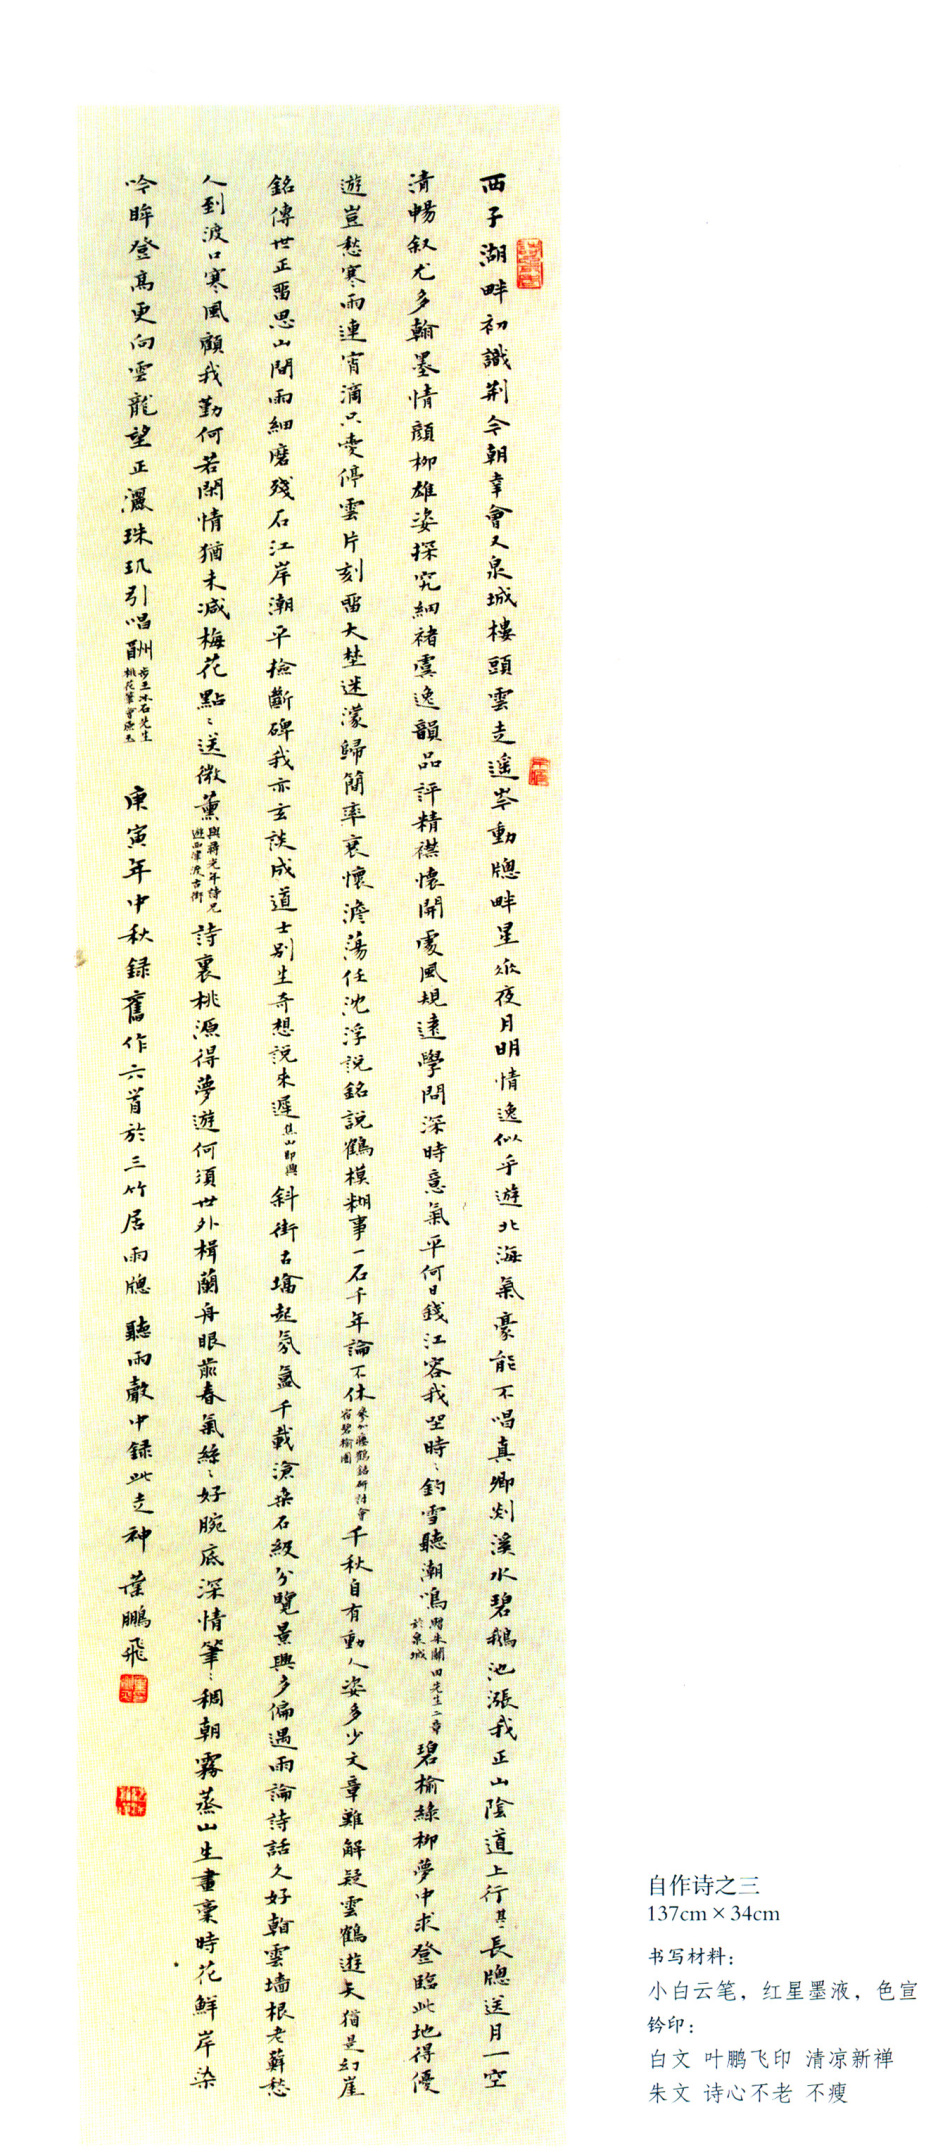 西子湖畔初識荆今朝幸會又泉城樓頭雲走遥岑動牕畔星疏夜月明情逸似乎遊北海氣豪能不唱真卿剡溪水碧鵝池漲我正山陰道上行其一長牕送月一空
清暢叙尤多翰墨情顔柳雄姿探究細褚虞逸韻品評精襟懷開處風規遠學問深時意氣平何日錢江容我坐時〻釣雪聽潮鳴贈朱關田先生二章於泉城碧榆緑柳夢中求登臨此地得優
遊豈愁寒雨連宵滴只愛停雲片刻留大埜迷濛歸簡率衷懷澹蕩任沈浮說銘說鶴模糊事一石千年論不休參加瘞鶴銘研討會宿碧榆園千秋自有動人姿多少文章難解疑雲鶴遊天猶是幻崖
銘傳世正留思山間雨細磨殘石江岸潮平撿斷碑我亦玄談成道士别生奇想說來遲焦山即興斜街古墻起氛氲千載滄桑石級分覽景興多偏遇雨論詩話久好翰雲墻根老蘚愁
人到渡口寒風顧我勤何若閑情猶未減梅花點〻送微薰與蔣光年詩兄遊西津渡古街詩裏桃源得夢遊何須世外楫蘭舟眼前春氣絲〻好腕底深情筆〻稠朝霧蒸山生畫稾時花鮮岸染
吟眸登高更向雲龍望正灑珠玑引唱酬步王冰石先生桃花筆會原玉 庚寅年中秋録舊作六首於三竹居雨牕 聽雨聲中録此走神 葉鵬飛
自作诗之三
137cm×34cm
书写材料：
小白云笔，红星墨液，色宣
钤印：
白文 叶鹏飞印 清凉新禅
朱文 诗心不老 不瘦